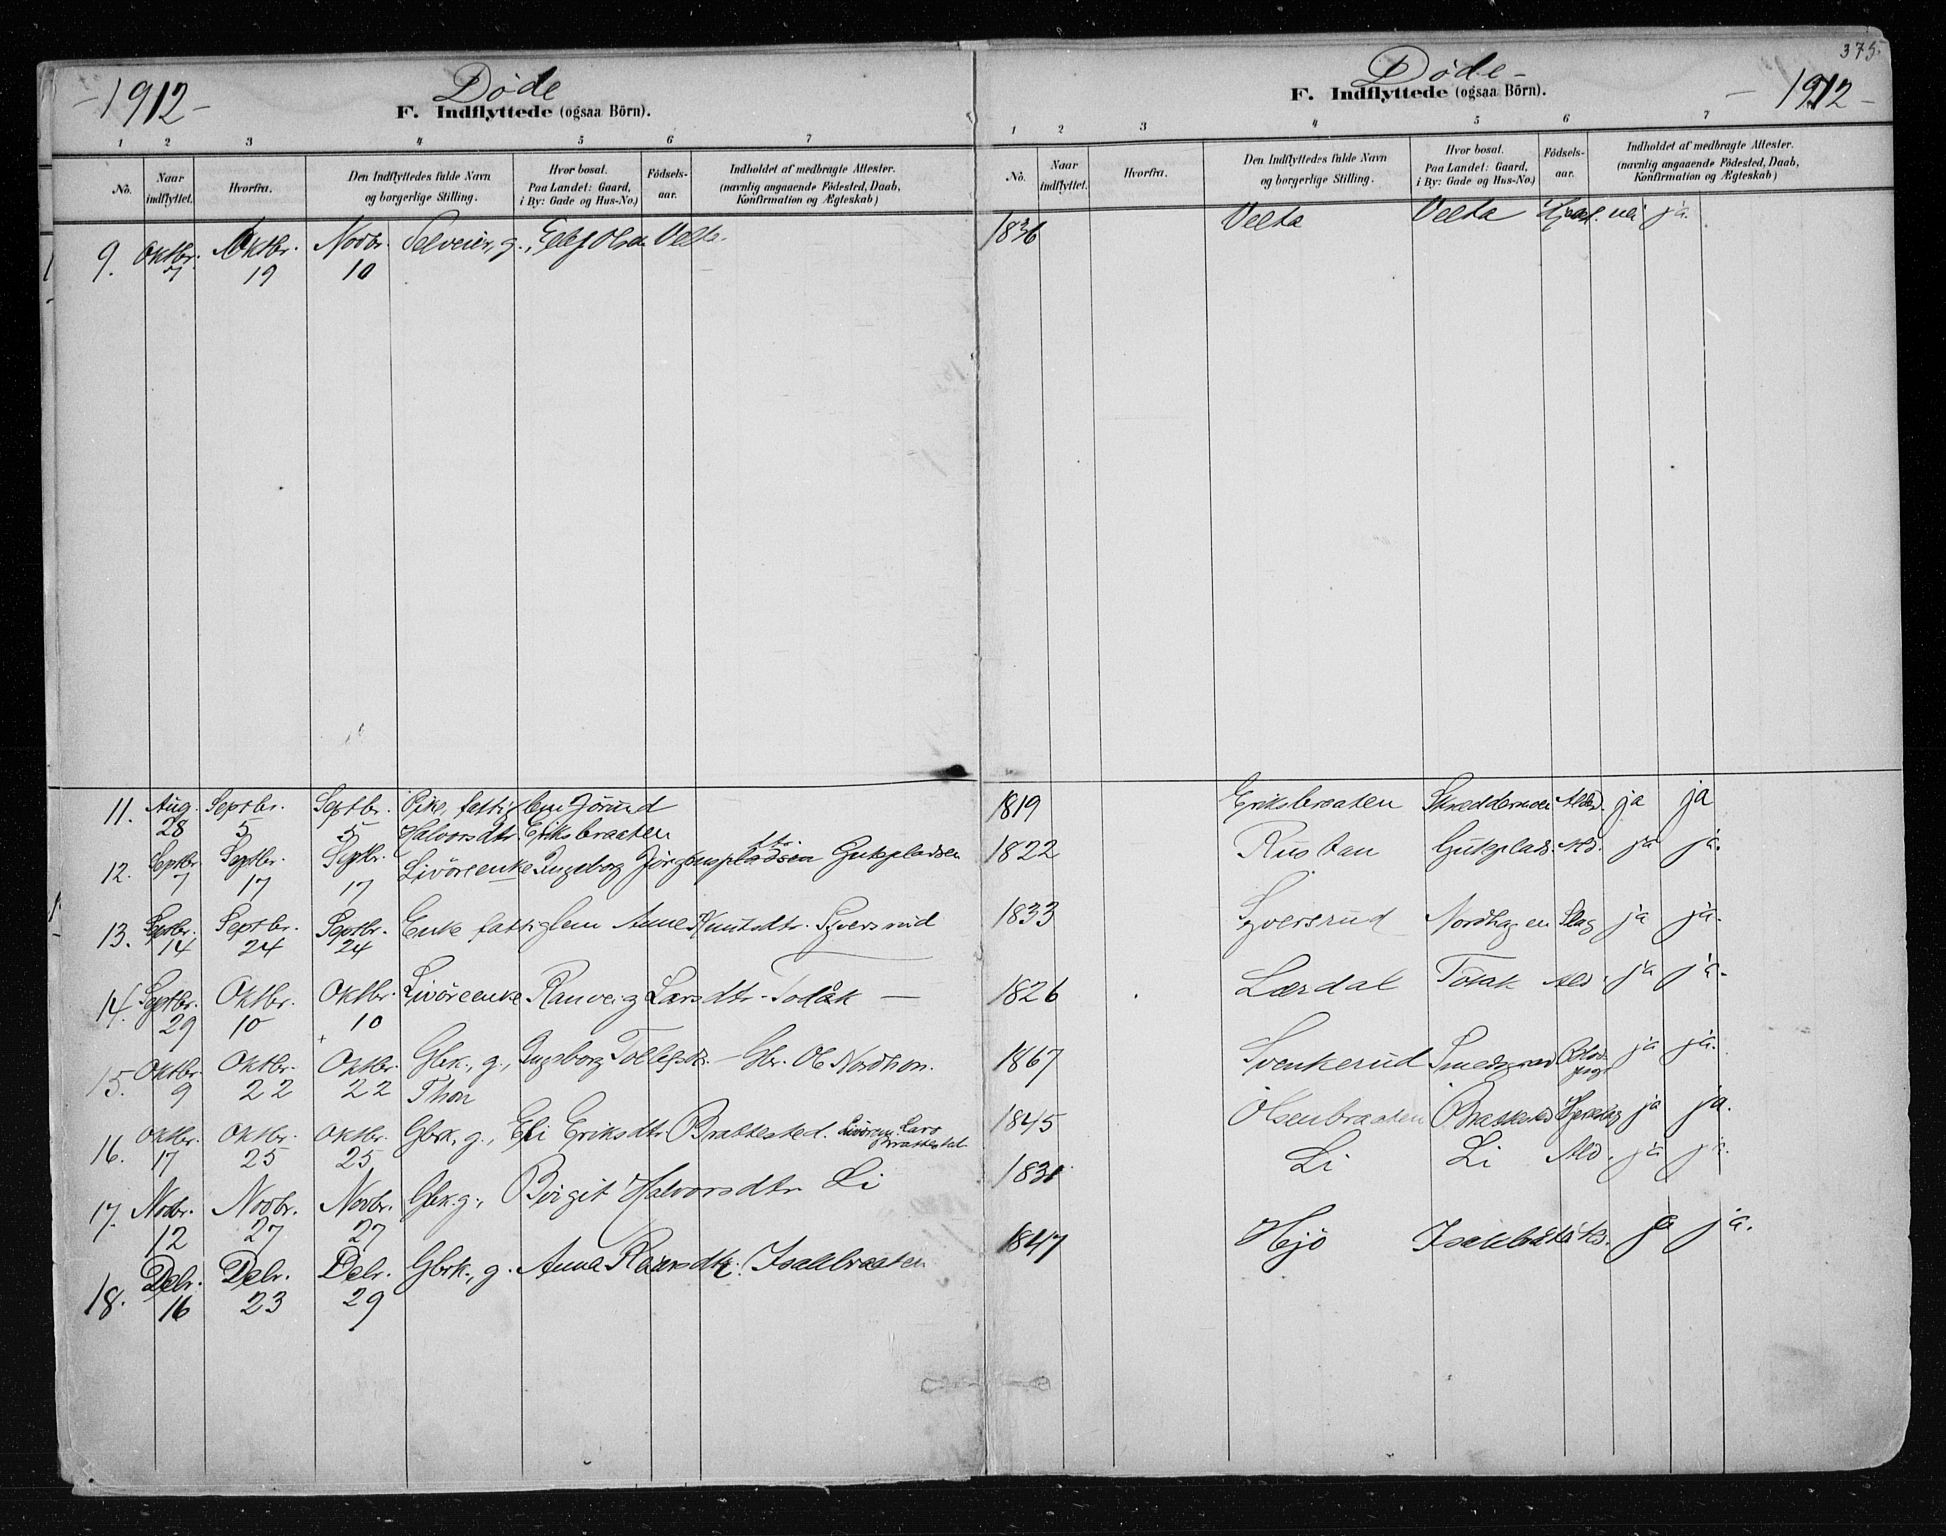 -1912-
Døde
F. Indflyttede (ogsaa Börn).
1 2 3 4 5 6 7
No.
Naar indflyttet.
Hvorfra.
Den Indflyttedes fulde Navn og borgerlige Stilling.
Hvor bosat. Paa Landet: Gaard, i By: Gade og Hus-No.)
Födsels-aar.
Indholdet af medbragte Attester. (navnlig angaaende Födested, Daab, Konfirmation og Ægteskab)
9. Oktbr. Oktbr. Novbr. Selveier, g., Ellef Olsen Velta
7 19 10
11. Aug. Septbr. Septbr. Pike, fattiglem Jörand
28 5 5 Halvorsdtr. Eriksbraaten
12. Septbr. Septbr. Septbr. Livöreenke Ingeborg Gukpladsen
7 17 17
13. Septbr. Septbr. Septbr. Enke fattiglem Anne Knutsdtr. Syversrud
14 24 24
14. Septbr. Oktbr. Oktbr. Livöreenke Ranveig Larsdtr. Todåk
29 10 10
15. Oktbr. Oktbr. Oktbr. Gbrk., g., Ingeborg Tollefsdtr. - Gbr. Ole Nordhon.
9 22 22 Thon
16. Oktbr. Oktbr. Oktbr. Gbrk., g., Eli Eriksdtr. Brattested. Lars Brattested
17 25 25
17. Novbr. Novbr. Novbr. Gbk. g., Birgit Halvorsdtr. Li
12 27 27
18. Debr. Debr. Debr. Gbrk., g. Anna Isakbraaten
16 23 29
375.
Døde-
-1912-
F. Indflyttede (ogsaa Börn).
1 2 3 4 5 6 7
No.
Naar indflyttet.
Hvorfra.
Den Indflyttedes fulde Navn og borgerlige Stilling.
Hvor bosat. Paa Landet: Gaard, i By: Gade og Hus-No.)
Födsels-aar.
Indholdet af medbragte Attester. (navnlig angaaende Födested, Daab, Konfirmation og Ægteskab)
1836 Velta Velta nei ja.
1819 Eriksbraaten Skreddermoen Alder. ja ja
1822 Rustan Gukplads. Ald. ja ja.
1833 Syversrud Nordhagen Slag ja ja.
1826 Lærdal Totak Ald. ja ja.
1867 Svenkerud ja ja.
1845 Olsenbraaten Brattested ja ja.
1830 Li Li Ald. ja ja.
1847 Hejö ja ja.